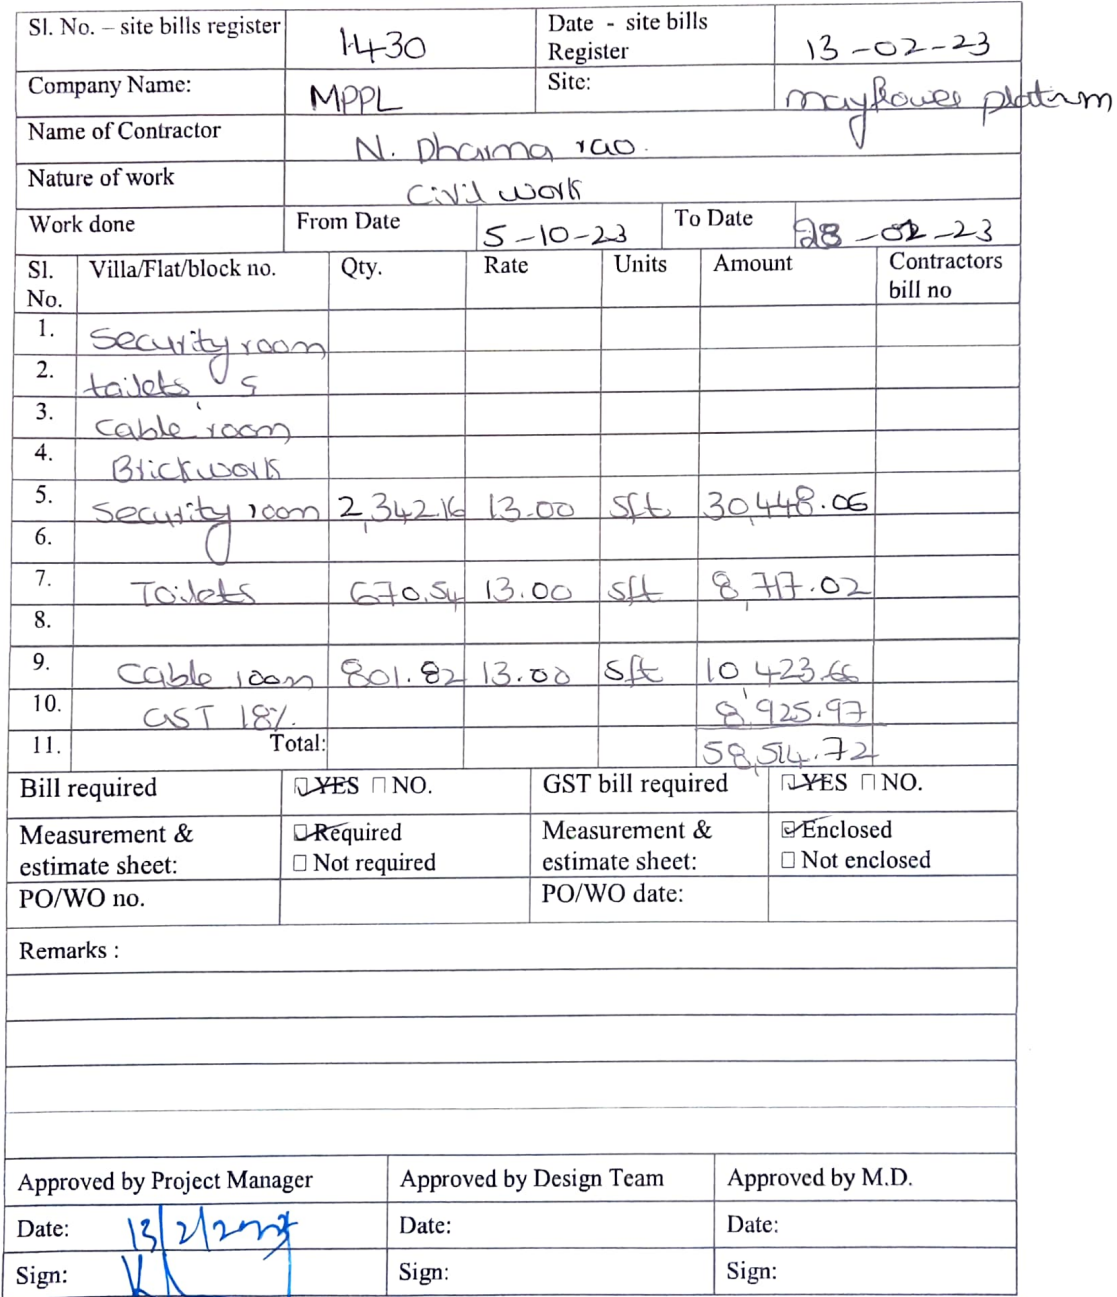 Sl. No. – site bills register 1430 Date - site bills Register 13-02-23
Company Name: MPPL Site: mayflower platnm
Name of Contractor N. Dharma rao.
Nature of work Civil work
Work done From Date 5-10-23 To Date 28-02-23
Sl. No. Villa/Flat/block no. Qty. Rate Units Amount Contractors bill no
1. Security room
2. tailets &
3. Cable room
4. Brickwork
5. Security room 2,342.16 13.00 Sft 30,448.06
6.
7. Toilets 670.54 13.00 Sft 8,717.02
8.
9. Cable room 801.82 13.00 Sft 10,423.66
10. GST 18%. 8,925.97
11. Total: 58,514.72
Bill required YES NO. GST bill required YES NO.
Measurement & estimate sheet: Required Not required Measurement & estimate sheet: Enclosed Not enclosed
PO/WO no. PO/WO date:
Remarks :
Approved by Project Manager Approved by Design Team Approved by M.D.
Date: 13/2/2023 Date: Date:
Sign: Sign: Sign: